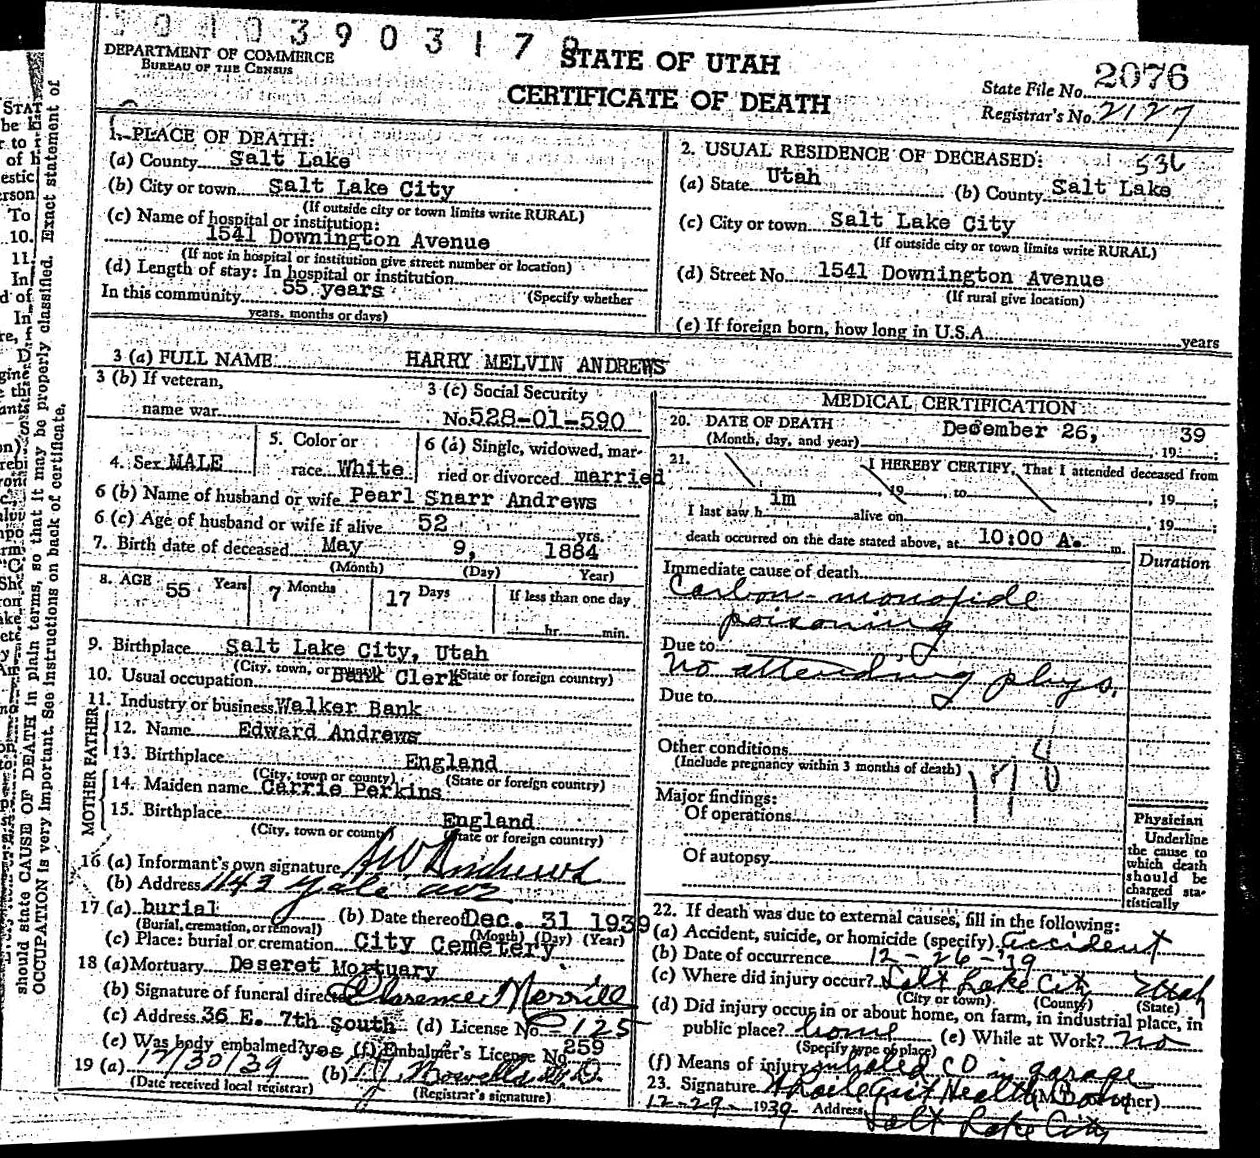 DEPARTMENT OF COMMERCE
BUREAU OF THE CENSUS
STATE OF UTAH
CERTIFICATE OF DEATH
State File No. 2076
Registrar's No. 2127
1. PLACE OF DEATH:
(a) County Salt Lake
(b) City or town Salt Lake City
(If outside city or town limits write RURAL)
(c) Name of hospital or institution:
1541 Downington Avenue
(If not in hospital or institution give street number or location)
(d) Length of stay: In hospital or institution
In this community 55 years (Specify whether
years, months or days)
2. USUAL RESIDENCE OF DECEASED: 536
(a) State Utah (b) County Salt Lake
(c) City or town Salt Lake City
(If outside city or town limits write RURAL)
(d) Street No. 1541 Downington Avenue
(If rural give location)
(e) If foreign born, how long in U.S.A. years
3 (a) FULL NAME HARRY MELVIN ANDREWS
3 (b) If veteran,
name war
3 (c) Social Security
No. 528-01-590
4. Sex MALE
5. Color or
race White
6 (a) Single, widowed, mar-
ried or divorced married
6 (b) Name of husband or wife Pearl Snarr Andrews
6 (c) Age of husband or wife if alive 52 yrs.
7. Birth date of deceased May 9, 1884
(Month) (Day) Year)
8. AGE 55 Years 7 Months 17 Days If less than one day
hr. min.
9. Birthplace Salt Lake City, Utah
(City, town, or county) (State or foreign country)
10. Usual occupation Bank Clerk
11. Industry or business Walker Bank
FATHER
12. Name Edward Andrews
13. Birthplace England
(City, town or county) (State or foreign country)
MOTHER
14. Maiden name Carrie Perkins
15. Birthplace England
(City, town or county) (State or foreign country)
16 (a) Informant's own signature AW Andrews
(b) Address 1143 Yale ave
17 (a) burial (b) Date thereof Dec. 31 1939
(Burial, cremation, or removal) (Month) (Day) (Year)
(c) Place: burial or cremation City Cemetery
18 (a) Mortuary Deseret Mortuary
(b) Signature of funeral director Clarence Merrill
(c) Address 36 E. 7th South (d) License No. 125
(e) Was body embalmed? yes (f) Embalmer's License No. 259
19 (a) 12/30/39 (b)
(Date received local registrar) (Registrar's signature)
MEDICAL CERTIFICATION
20. DATE OF DEATH
(Month, day, and year) December 26, 19 39
21. I HEREBY CERTIFY, That I attended deceased from
, 19 , to , 19 ;
I last saw h im alive on , 19 ;
death occurred on the date stated above, at 10:00 A. m.
Duration
Immediate cause of death
Carbon-monoxide
poisoning
Due to
No attending phys.
Due to
Other conditions
(Include pregnancy within 3 months of death)
Major findings:
Of operations
Of autopsy
Physician
Underline
the cause to
which death
should be
charged sta-
tistically
22. If death was due to external causes, fill in the following:
(a) Accident, suicide, or homicide (specify) Accident
(b) Date of occurrence 12-26-'39
(c) Where did injury occur? Salt Lake City Utah
(City or town) (County) (State)
(d) Did injury occur in or about home, on farm, in industrial place, in
public place? home (e) While at Work? no
(Specify type of place)
(f) Means of injury inhaled CO in garage
23. Signature
12-29-1939 Address Salt Lake City
should state CAUSE OF DEATH in plain terms, so that it may be properly classified. Exact statement of
OCCUPATION is very important. See instructions on back of certificate.